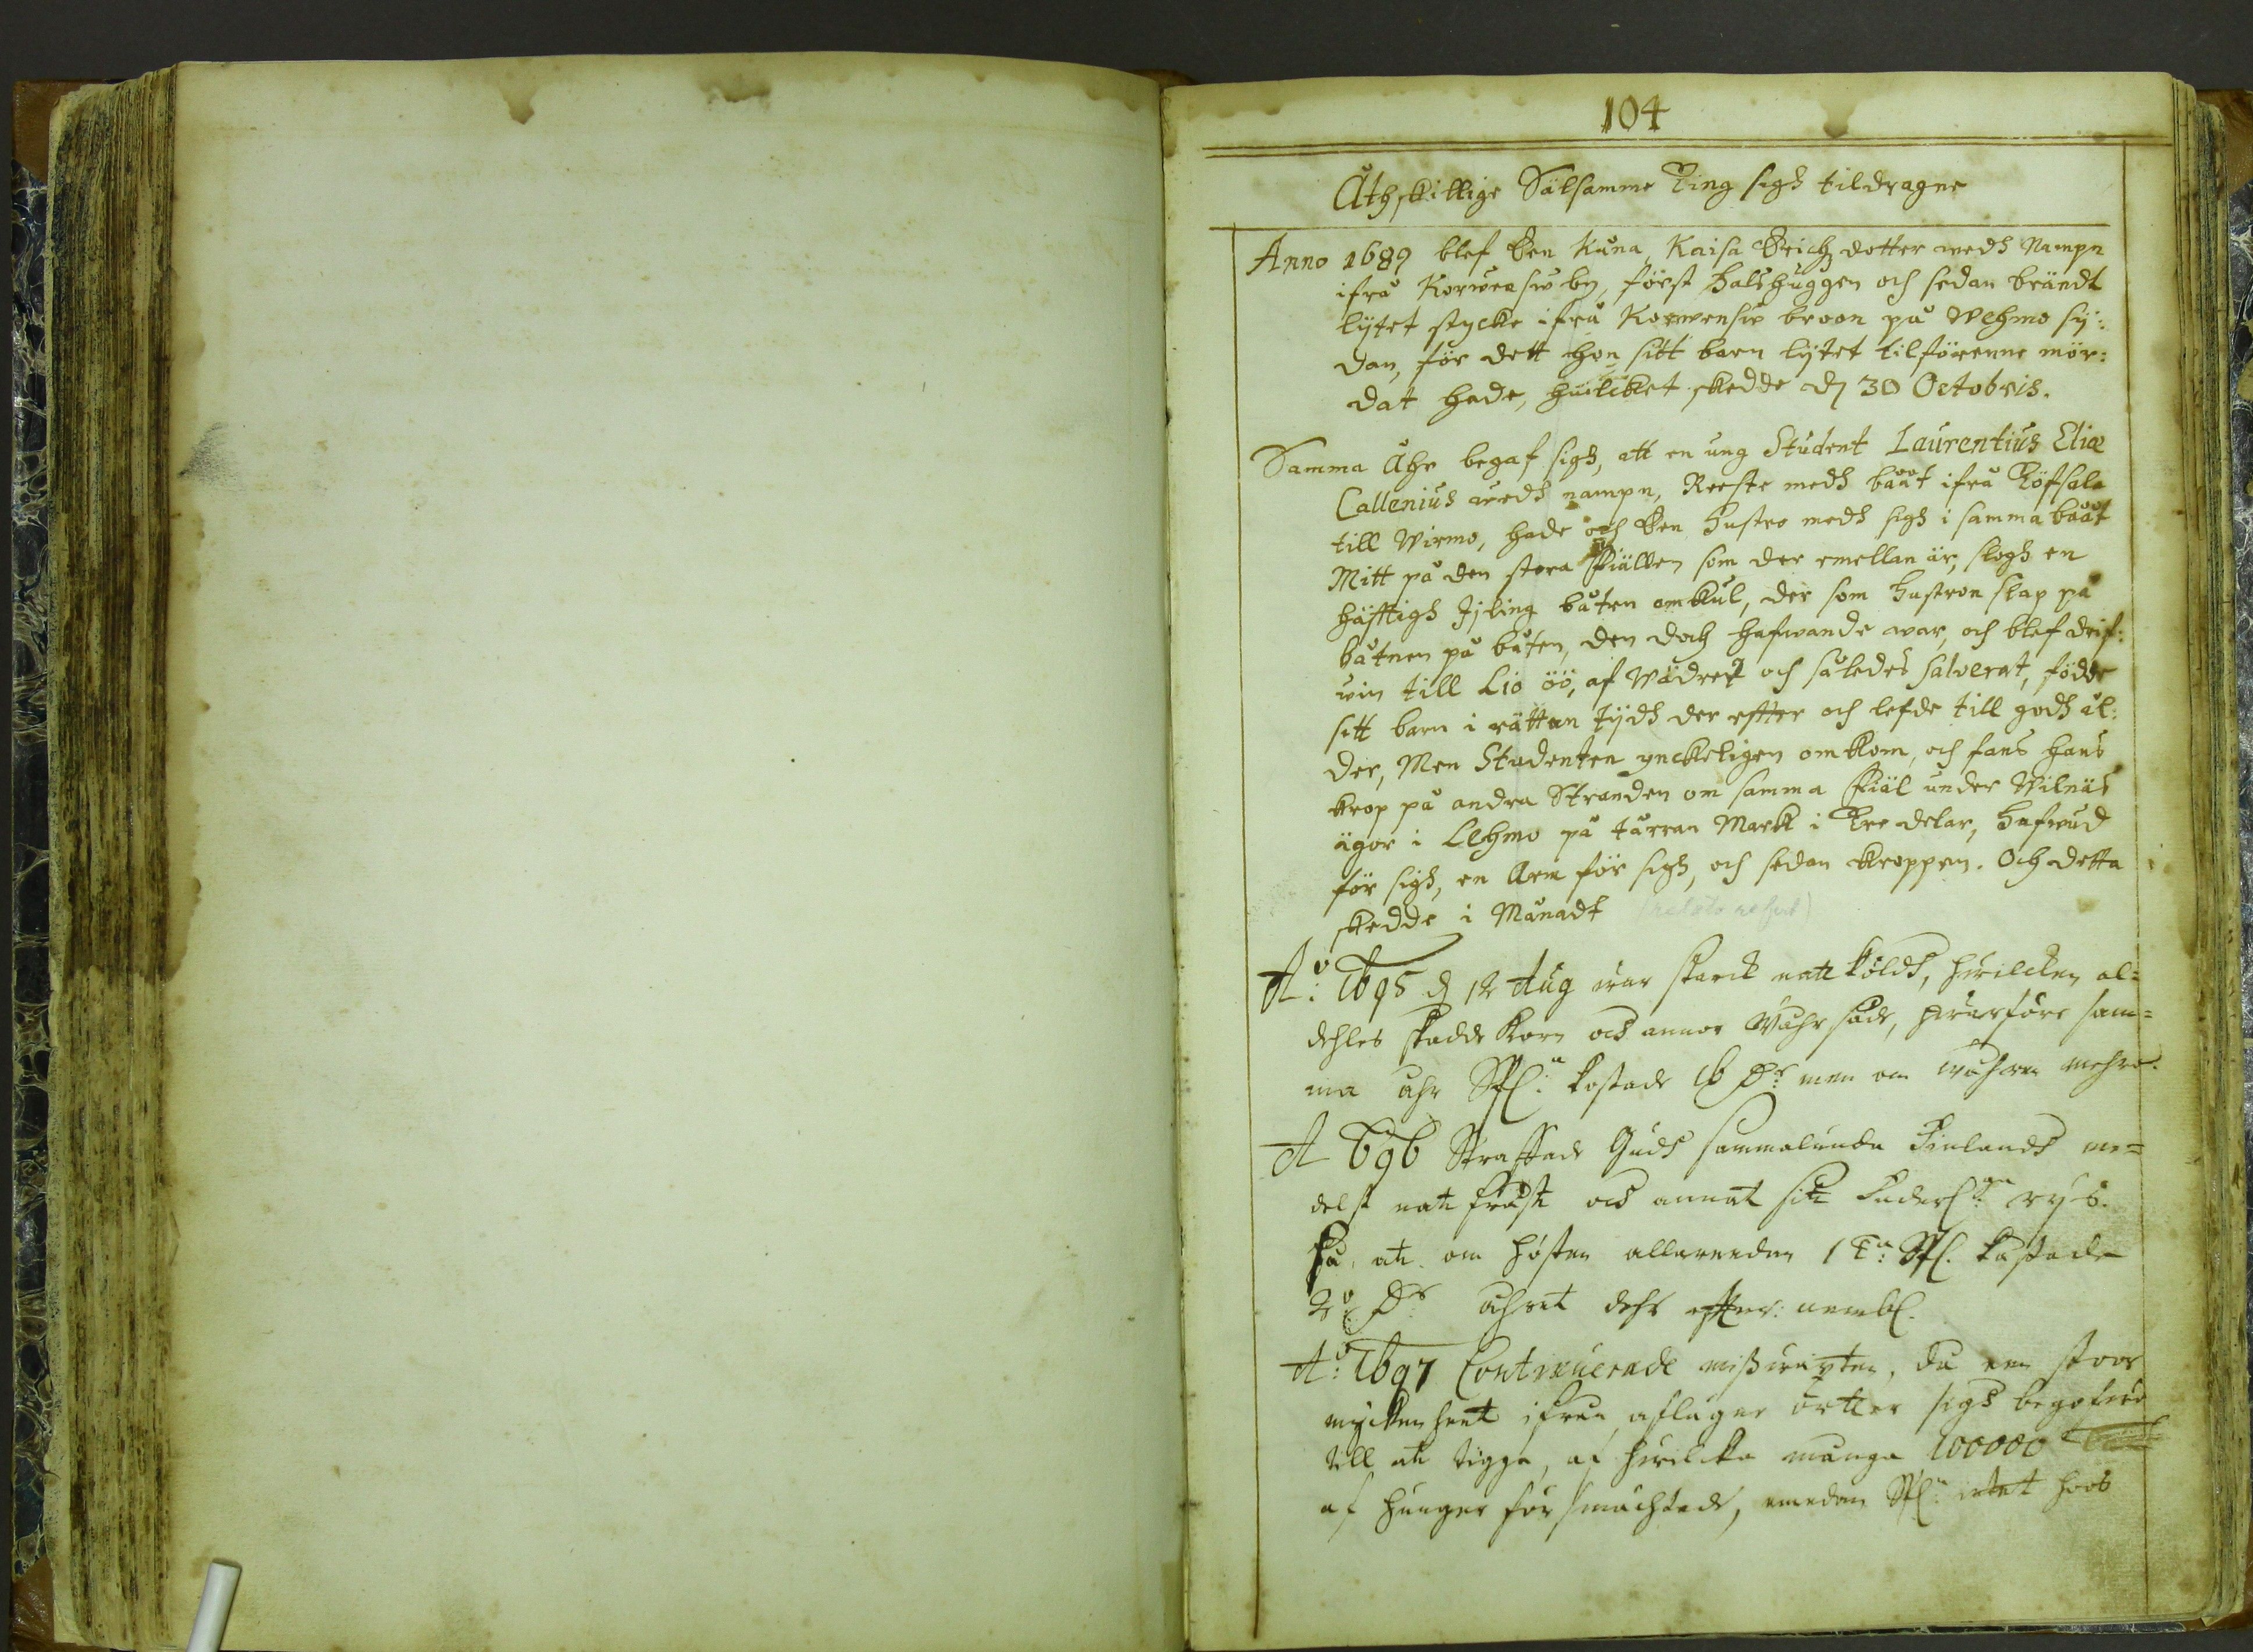 104
Åthskillige Sälsamme Ting sigh tildragne
Anno 1689 blef Een Kåna, Kaisa Erichz dotter wedh Nampn
ifrå Korwensw by, först Halshuggen och sedan brändt
lijtet stycke ifrå Korwensw broon på Wehmo sij:
dan, för dett hon sitt barn lijtet tilförenne mör:
dat hade, huilcket skedde d 30 Octobris.
Samma Åhr begaf sigh, att en ung Student Laurentius Eliæ
Callenius wedh nampn, Reeste medh bååt ifrå Töfsala
till Wirmo, hade och Een hustro medh sigh i samma bååt
Mitt på den stora Fiälden som der emellan är, slogh en
häfftigh Jjling båten omkul, der som hustron slap på
båtnen på båten, den doch hafwande war, och blef drif:
win till Lio öö, af Wädret och således salverat, födde
sitt barn i rättan tijdh der effter och lefde till godh ål:
der, Men Studenten ynckeligen omkom, och fans hans
krop på andra Stranden om samma Fiäl under Wilnäs
ägor i Lehmo på tårran Mark i Tre delar, Hufwud
för sigh, en Arm för sigh, och sedan kroppen. Och detta
skedde i Månadt
Ao: 1695 d 12 Aug war starck natt köldh, hwilcken al=
dehles skadde Korn och annor Wåhr sädh, hwarföre sam=
ma åhr Sp: kostade 16 Dr men om wåhren mehra.
A 696 Straffade Gudh sammalunda Finlandh me=
delst natt fråst och annat sitt rijs.
så, att om hösten allareedan 1 Ta: Sp. kostade
Dr åhret dehr effter: nembl.
Ao: 1697 Continuerade missväxten, då een stoor
myckenheet ifrån aflägne orter sigh begofwe
till att tigga, af hwilcka många 100000
af hunger försmächtade, emedan Sp: intet hoos